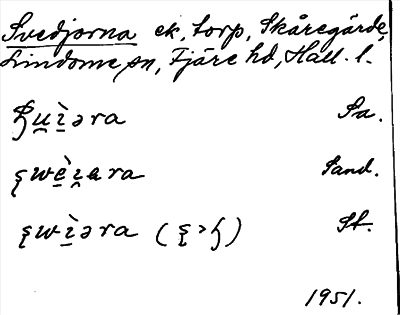 Svedjorna ek, torp, Skåregärde,
Lindome sn, Fjäre hd, Hall. l.
ɧu̯ì̱əra Sa.
ȿwe̱ì̯ara Sand.
ȿwì̱əra (ȿ>ɧ) St.
1951.